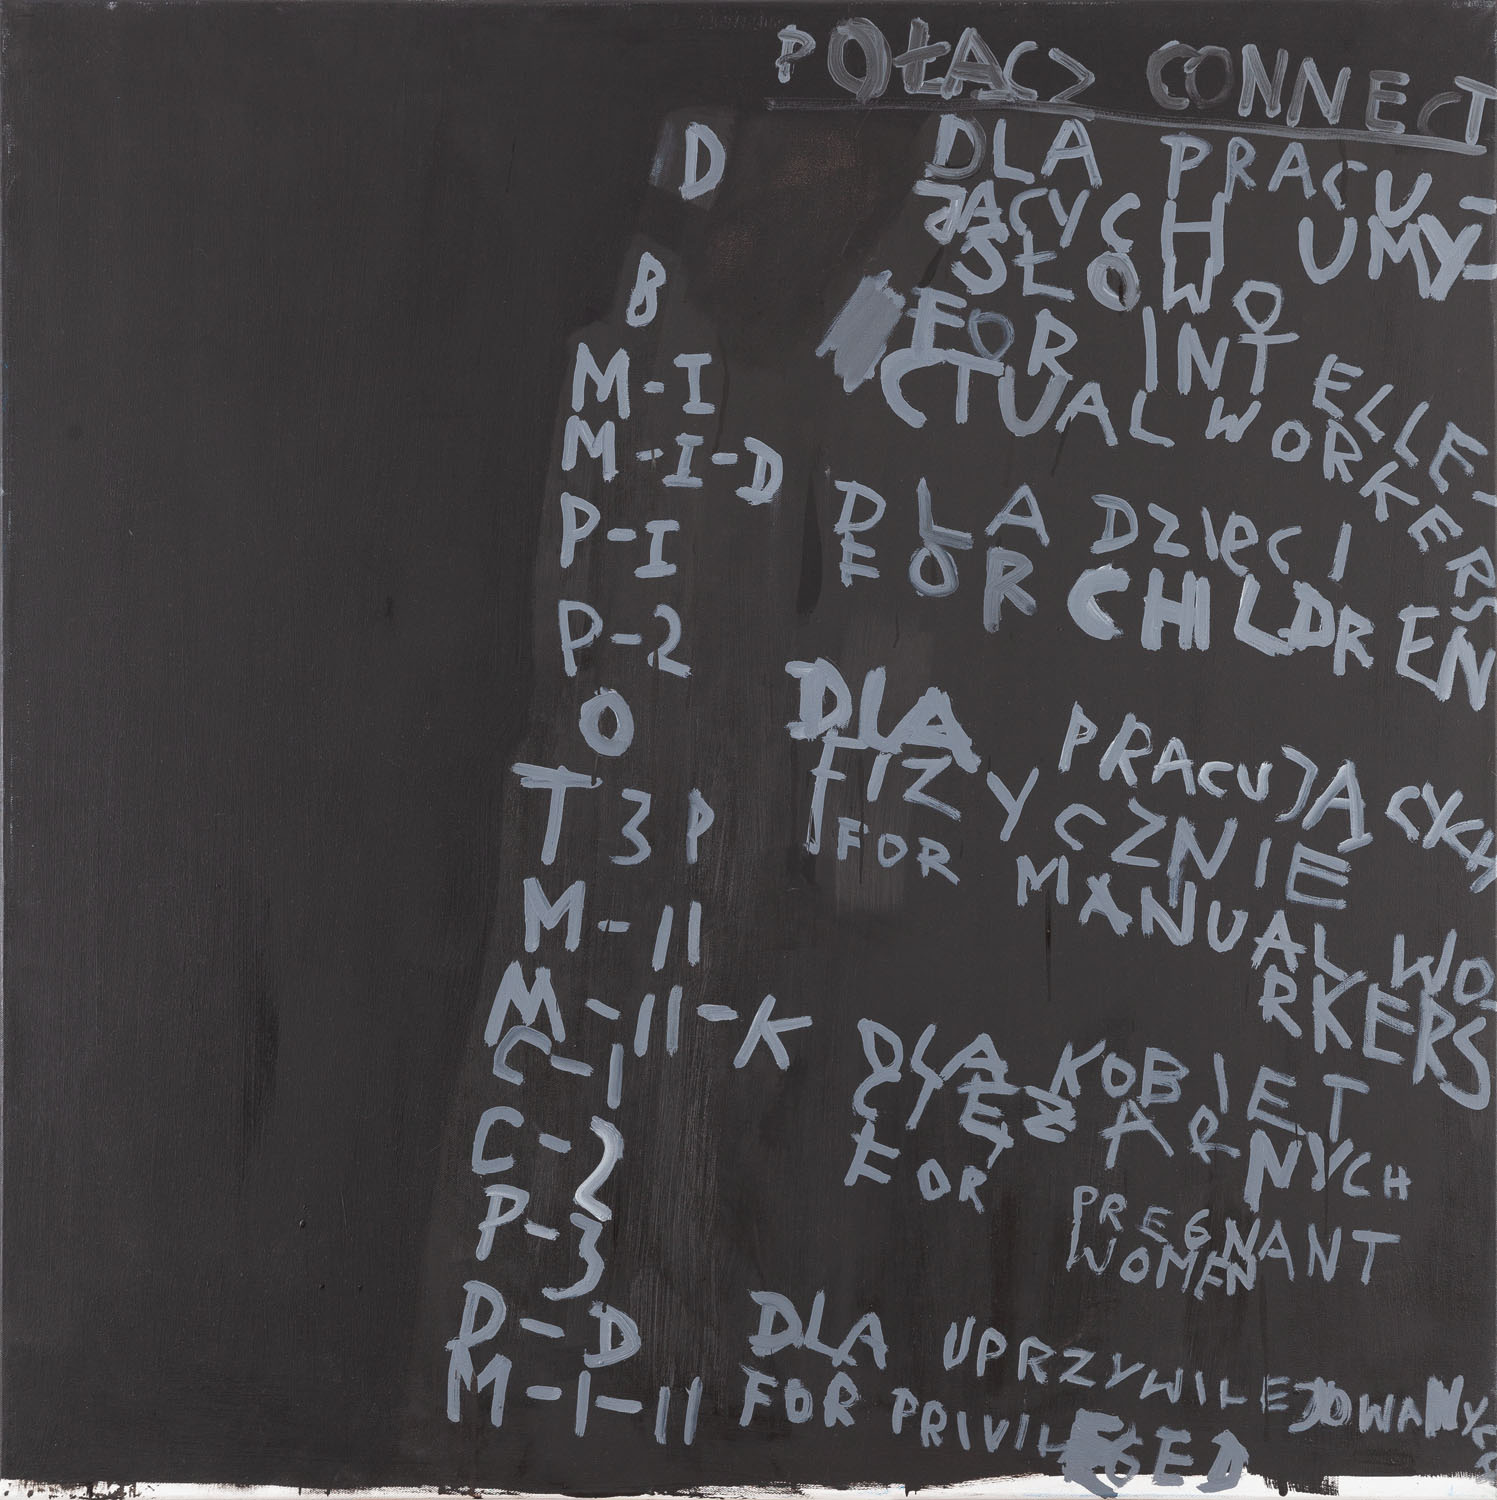 POŁĄCZ CONNECT
D
B
M-I
M-I-D
P-I
P-2
O
T 3 P
M-II
M-II-K
C-1
C-2
P-3
R-D
M-I-II
DLA PRACU-
JĄCYCH UMY-
SŁOWO
FOR INTELLE-
CTUAL WORKERS
DLA DZIECI
FOR CHILDREN
DLA PRACUJĄCYCH
FIZYCZNIE
FOR MANUAL WO-
RKERS
DLA KOBIET
CIĘŻARNYCH
FOR PREGNANT
WOMEN
DLA UPRZYWILEJOWANYCH
FOR PRIVILEGED